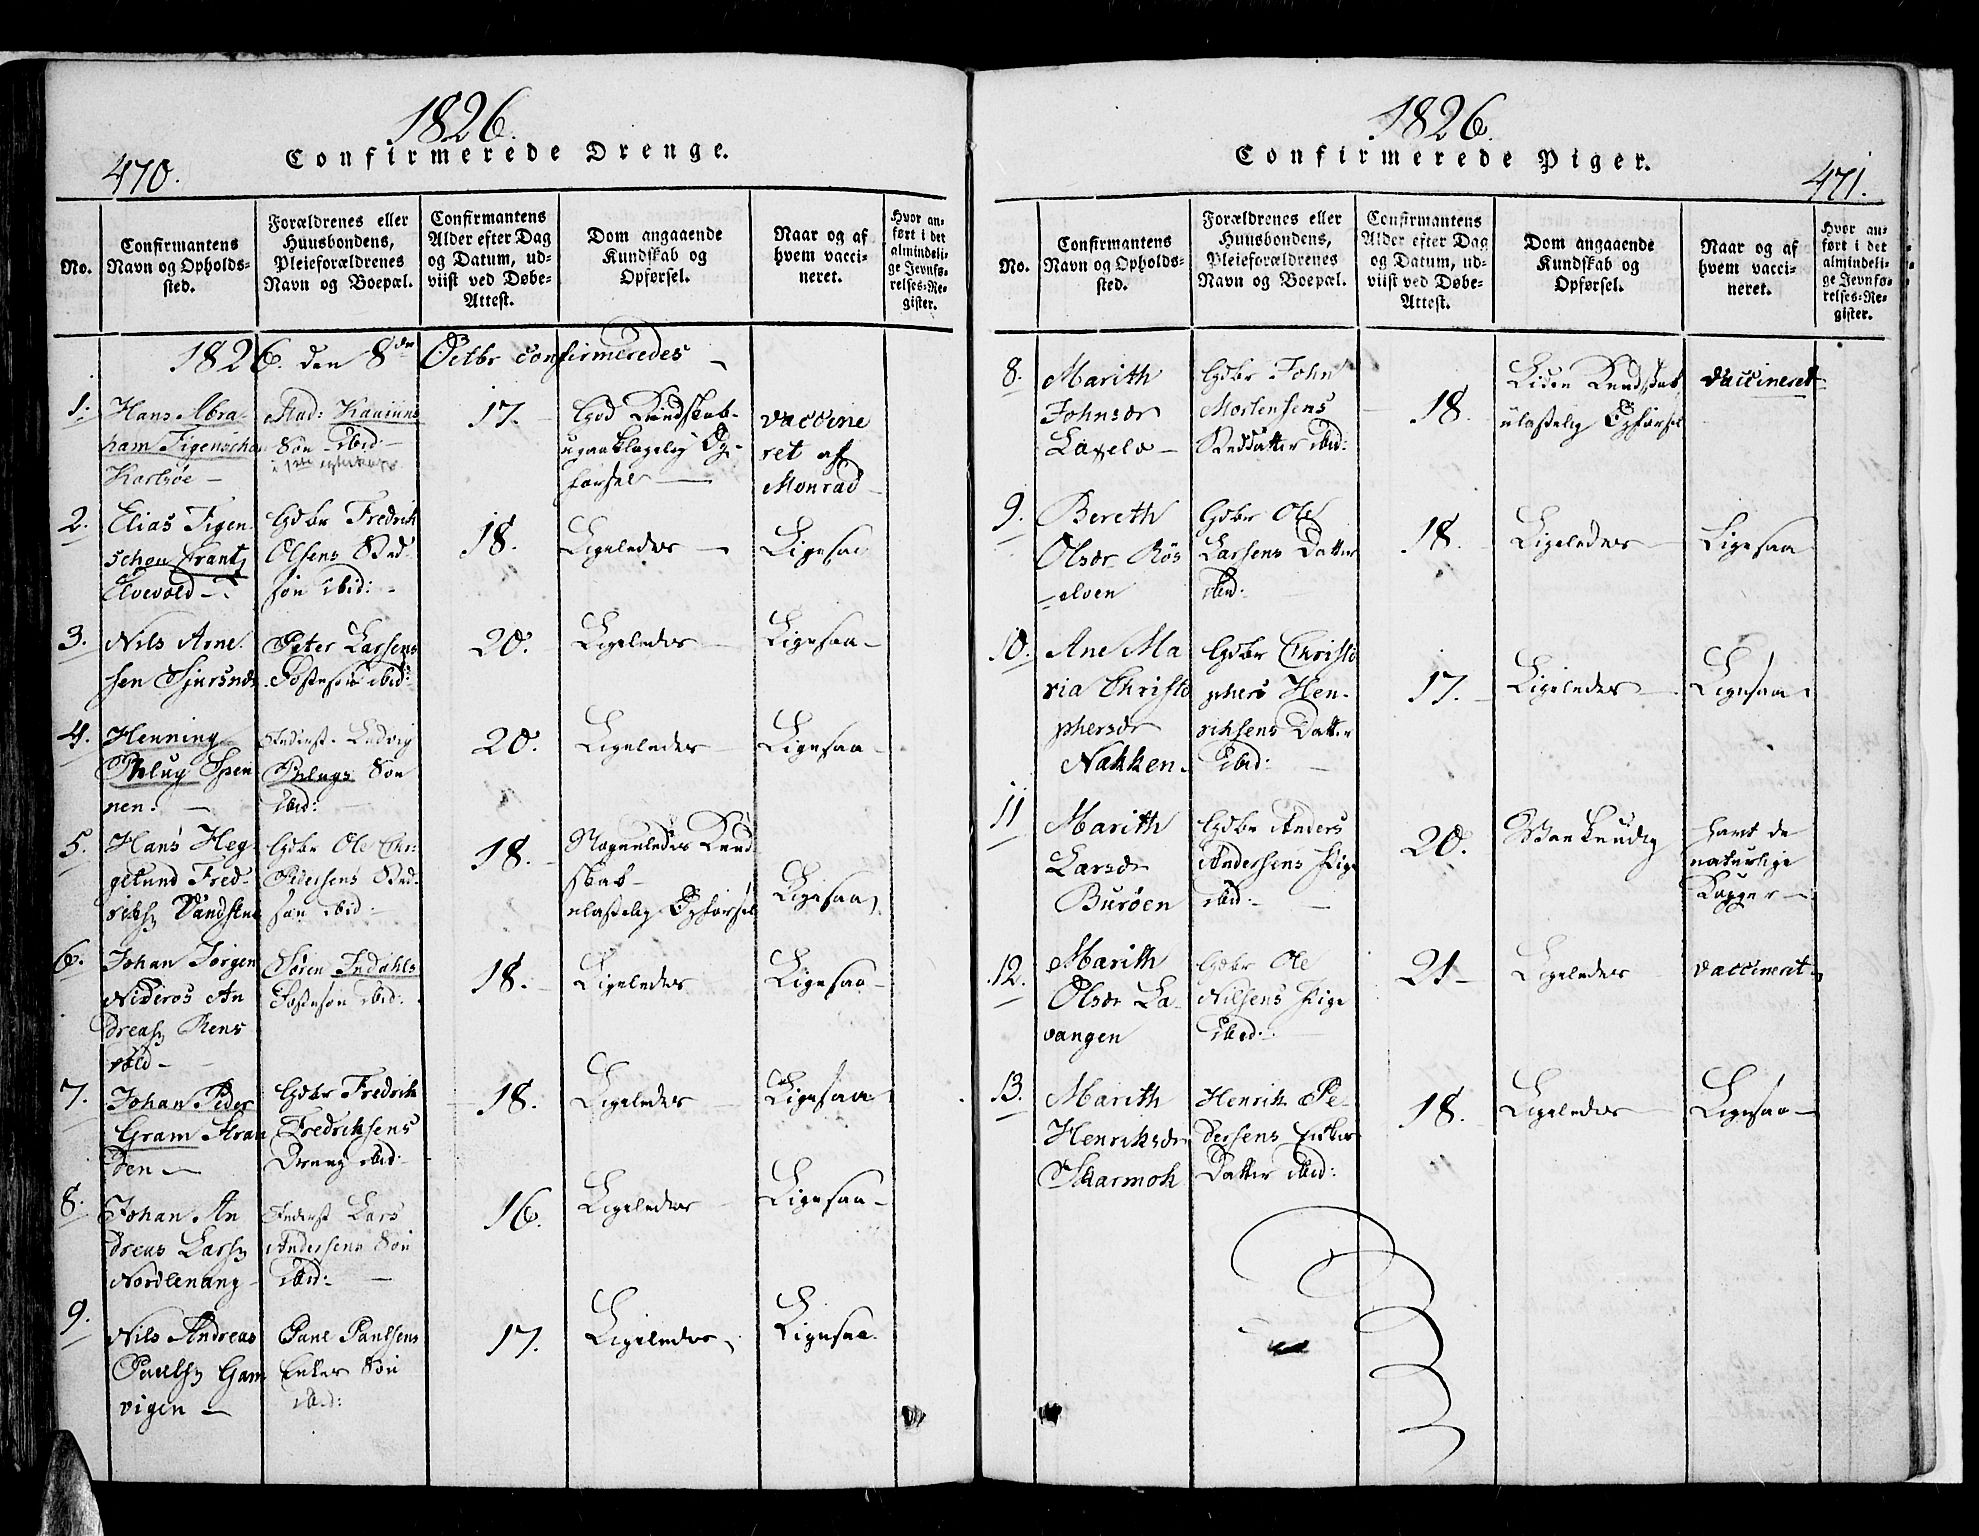 1826.
Confirmerede Drenge.
470.
No.
Confirmantens
Navn og Opholds-
sted.
Forældrenes eller
Huusbondens,
Pleieforældrenes
Navn og Boepæl.
Confirmantens
Alder efter Dag
og Datum, ud-
viist ved Døbe-
Attest.
Dom angaaende
Kundskab og
Opførsel.
Naar og af
hvem vacci-
neret.
Hvor an-
ført i det
almindeli-
ge Jevnfø-
relses-Re-
gister.
1826. den 8de Octbr confirmeredes
1.
Hans Abra-
ham Figenschau
Karlsøe
Søn ibid:
17.
God Kundskab
upaaklagelig Op-
førsel
vaccine
ret af
Monrad
2.
Elias Figen
schou Frantz
Elvevold
Gdbr Fredrik
Olsens
søn ibid:
18.
Ligeledes
Ligesaa
3.
Nils Arne
sen Sjursnæs
Peter Larsens
Fostersøn ibid:
20.
Ligeledes
Ligesaa
4.
Henning
Phlug Spen
nen.
Inderst Ludvig
Phlugs Søn
ibid:
20.
Ligeledes
Ligesaa
5.
Hans Heg-
gelund Fred-
riks
Gdbr Ole Chr:
Pedersens
søn ibid:
18.
Nogenledes Kund
skab
ulastelig Opførsel
Ligesaa
6.
Johan Jørgen
Nideros An
dreas Rens
vold
Søren Indahls
Fostersøn ibid:
18.
Ligeledes
Ligesaa
7.
Johan Peder
Gram Stran
den
Gdbr Fredrik
Fredriksens
Dreng ibid:
18.
Ligeledes
Ligesaa
8.
Johan An
dreas Lars
Nordlenang
Inderst Lars
Andersens Søn
ibid:
16.
Ligeledes
Ligesaa
9.
Nils Andreas
Pauls Gam
vigen
Paul Paulsens
Enkes Søn
ibid:
17.
Ligeledes
Ligesaa
1826.
Confirmerede Piger.
471.
No.
Confirmantens
Navn og Opholds-
sted.
Forældrenes eller
Huusbondens,
Pleieforældrenes
Navn og Boepæl.
Confirmantens
Alder efter Dag
og Datum, ud-
viist ved Døbe-
Attest.
Dom angaaende
Kundskab og
Opførsel.
Naar og af
hvem vacci-
neret.
Hvor an-
ført i det
almindeli-
ge Jevnfø-
relses-Re-
gister.
8.
Marith
Johnsdr
Laxelv
Gdbr John
Mortensens
ibid:
18.
Liden Kundskab
ulastelig Opførsel
vaccineret
9.
Bereth
Olsdr Røs
elven
Gdbr Ole
Larsens Datter
ibid:
18.
Ligeledes
Ligesaa
10.
Ane Ma
ria Christo
phersdr
Nakken.
Gdbr Christo
phers Hen-
riksens Datter
ibid:
17.
Ligeledes
Ligesaa
11
Marith
Larsdr
Burøen
Gdbr Anders
Andersens Pige
ibid:
20.
Vankundig
havt de
naturlige
Kopper
12.
Marith
Olsdr La-
vangen
Gdbr Ole
Nilsens Pige
ibid:
21
Ligeledes
vaccineret
13.
Marith
Henriksdr
Skarmok
Henrik Pe-
dersens Enkes
Datter ibid:
18.
Ligeledes
Ligesaa